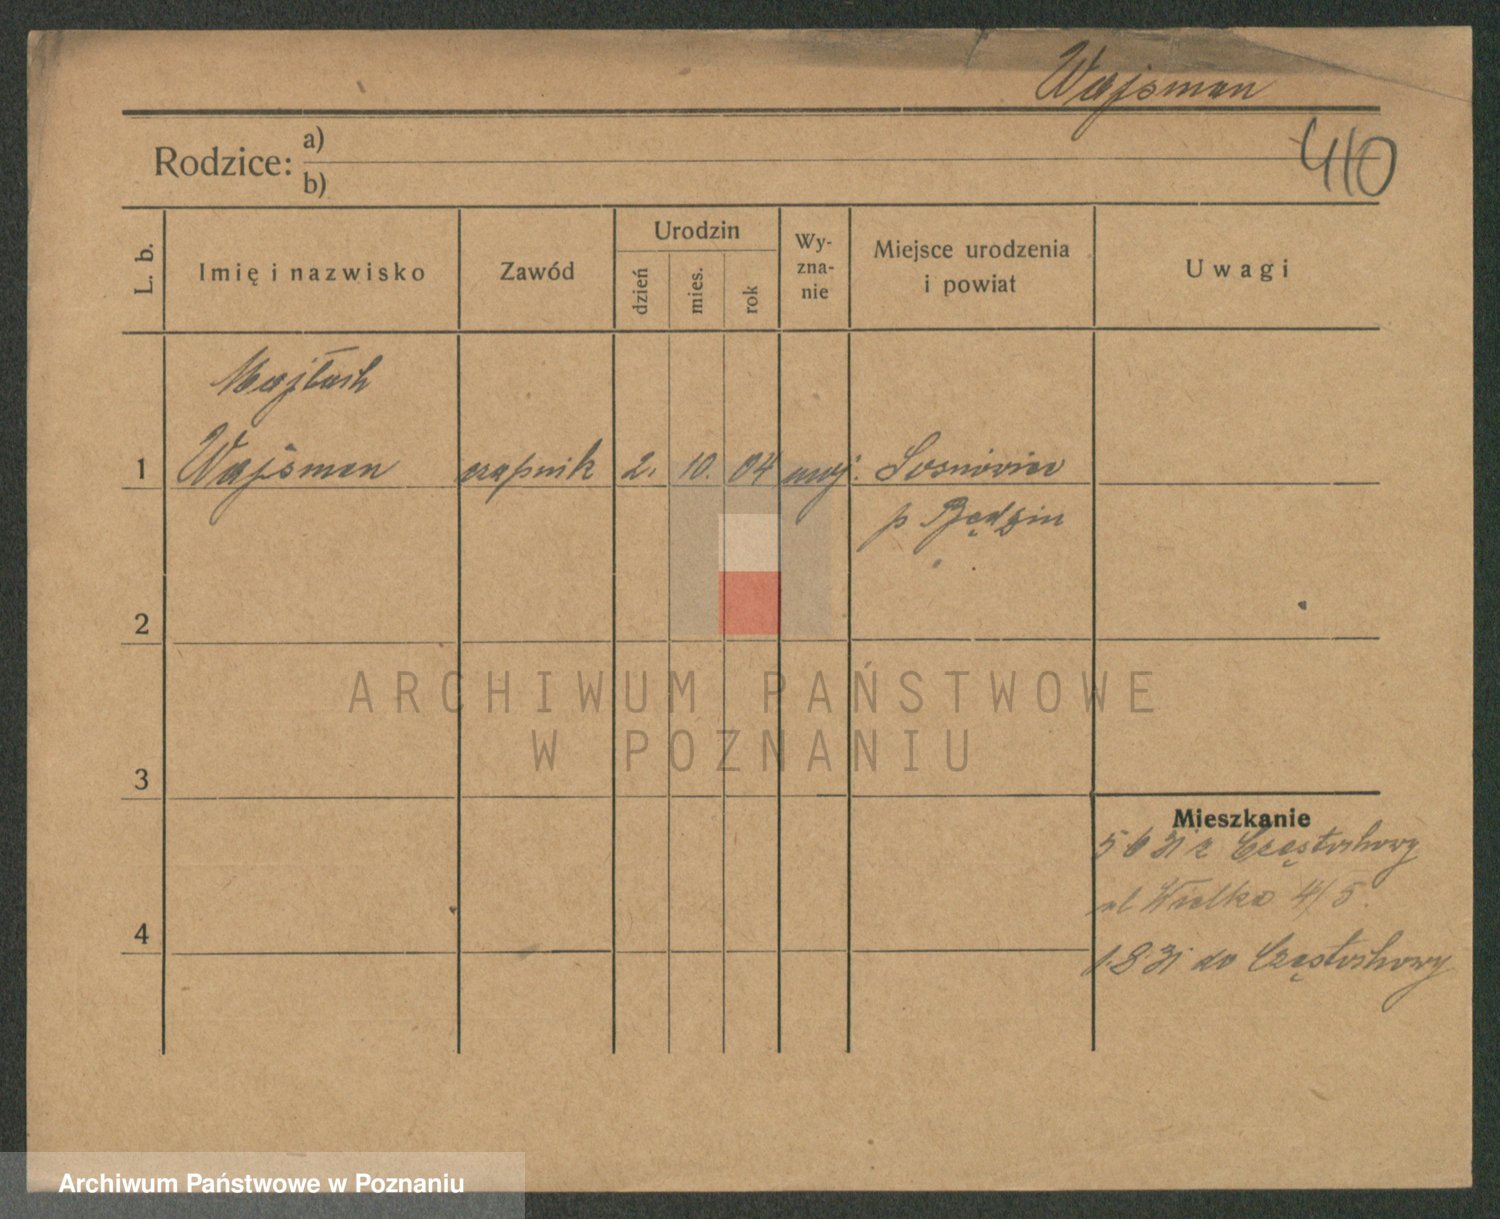 Wajsman
410
Rodzice: a)
b)
L. b.
Imię i nazwisko
Zawód
Urodzin
dzień
mies.
rok
Wy-
zna-
nie
Miejsce urodzenia
i powiat
Uwagi
Majłach
1 Wajsman czapnik 2. 10. 04 moj. Sosnowiec
p Będzin
2
3
4
Mieszkanie
5 6 31 z Częstochowy
ul Wielka 4/5.
1.8 31 do Częstochowy
ARCHIWUM PAŃSTWOWE
W POZNANIU
Archiwum Państwowe w Poznaniu